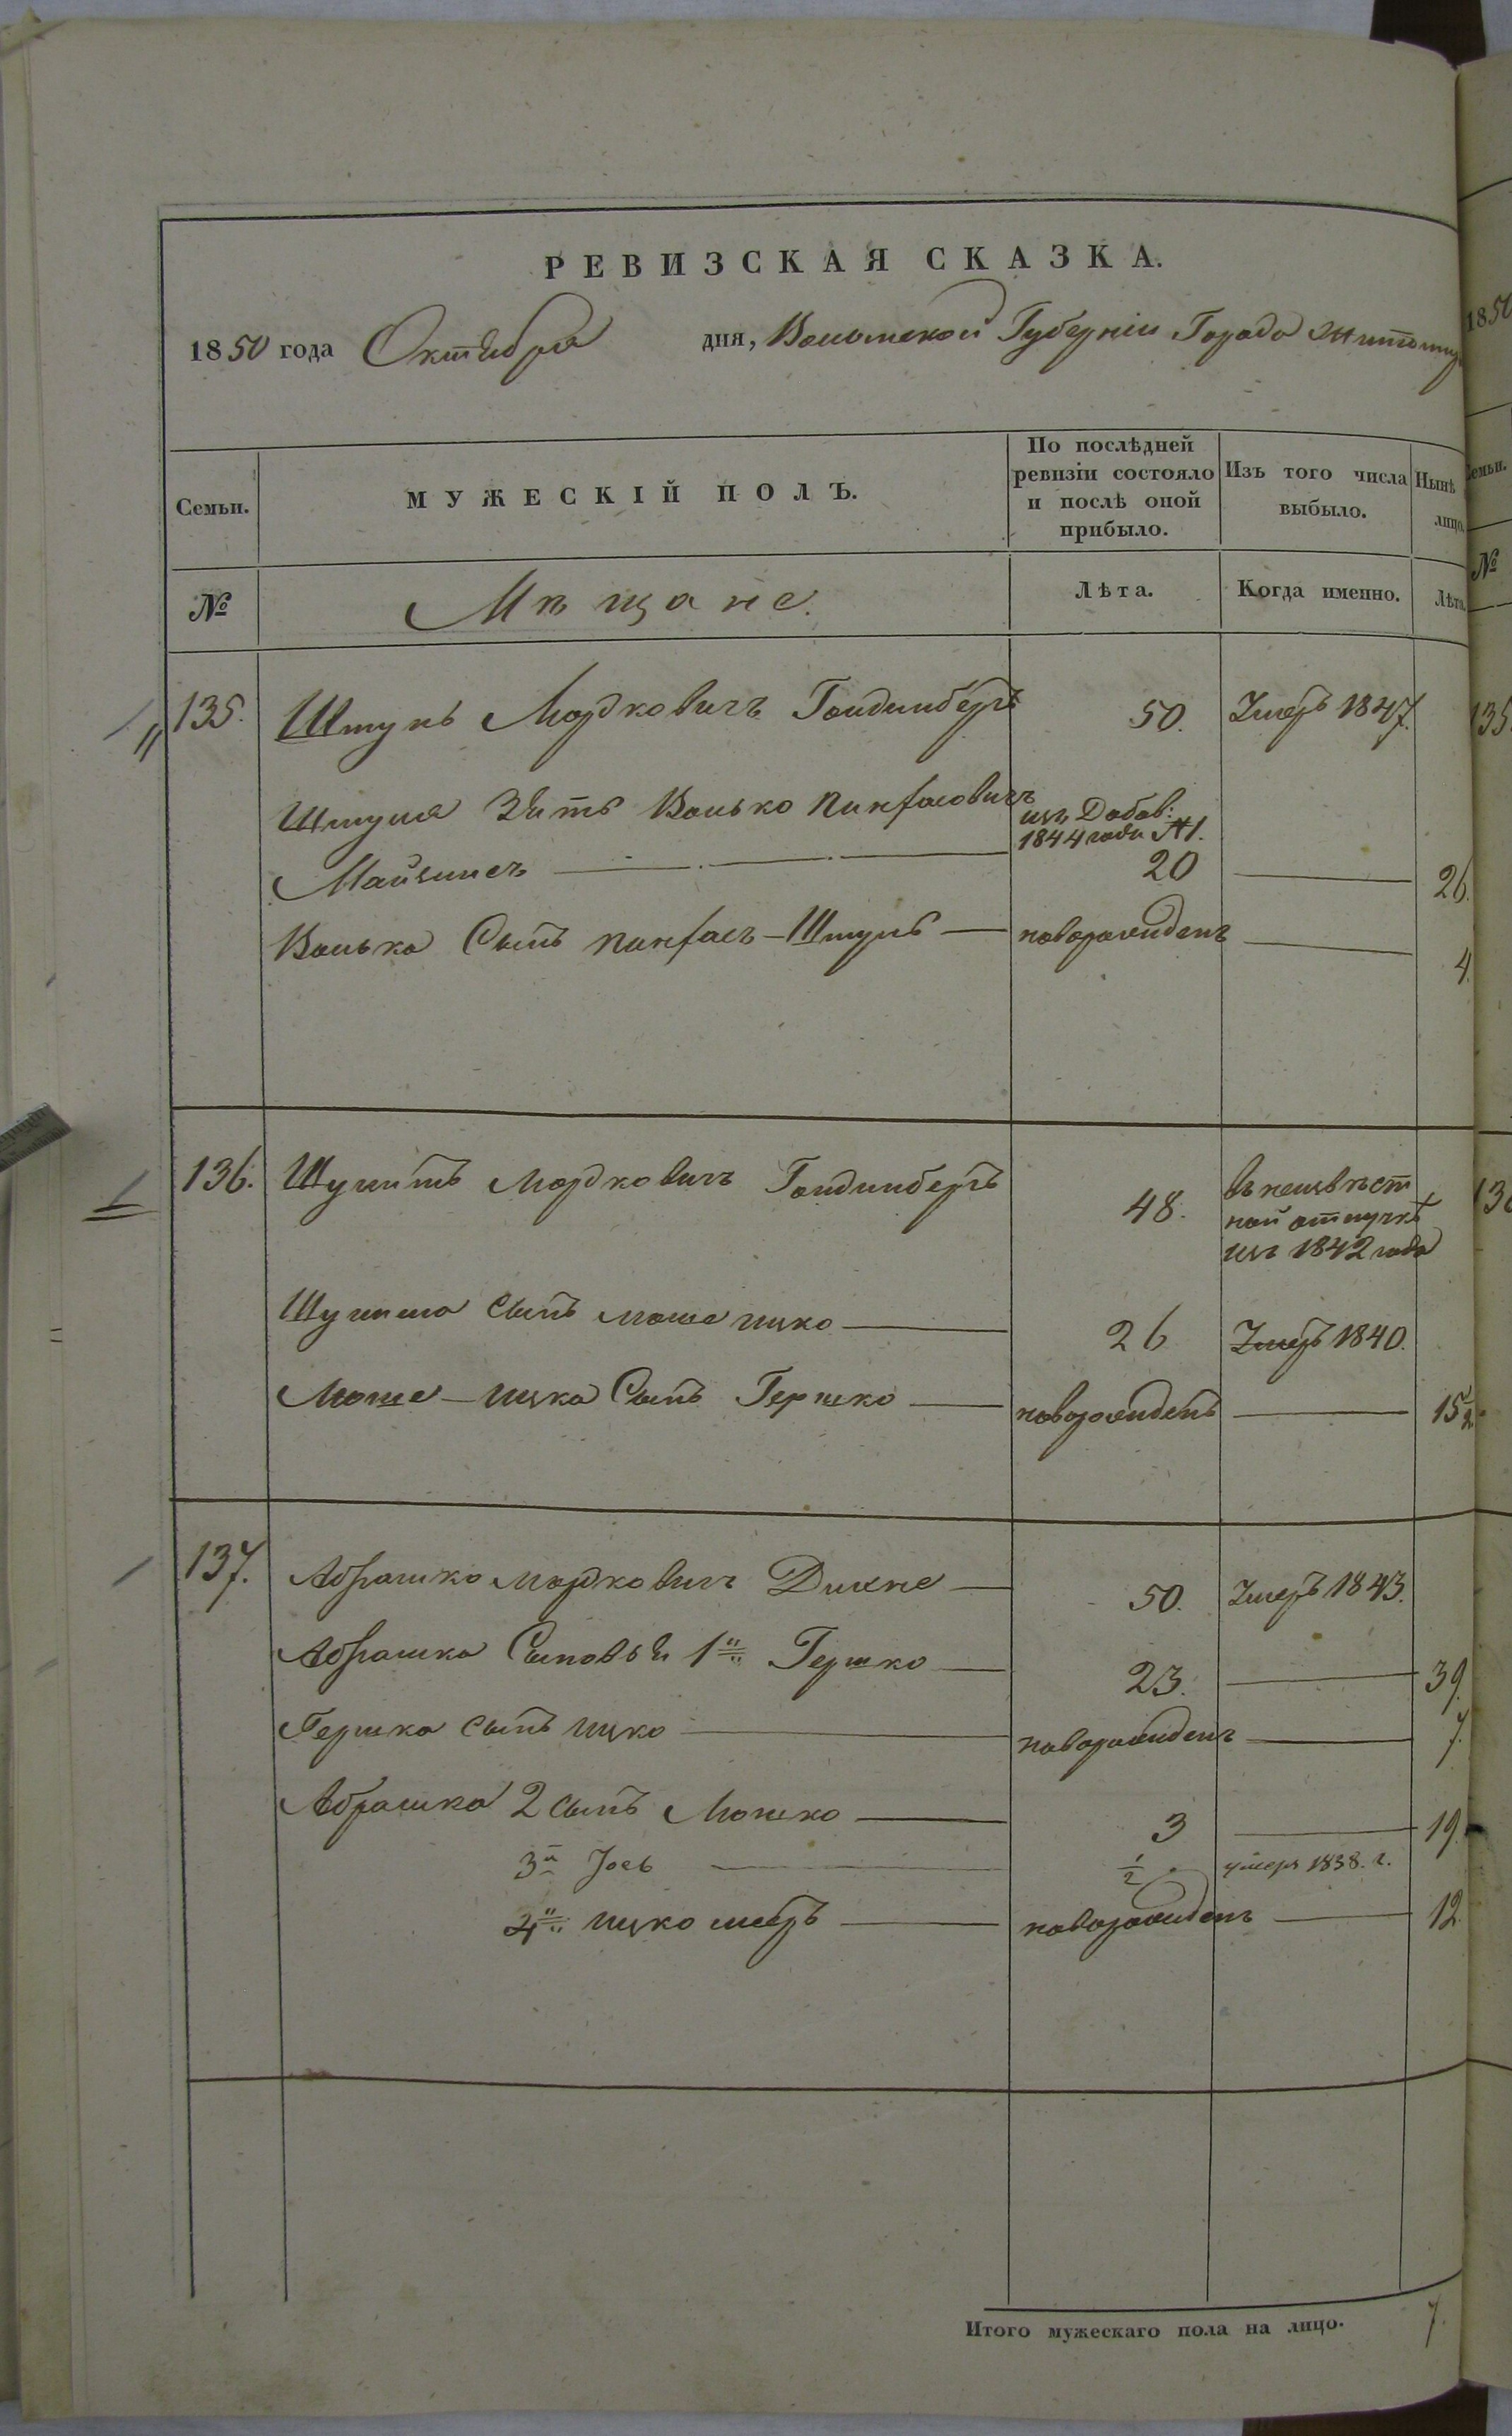 РЕВИЗСКАЯ СКАЗКА.
1850 года Октября дня, Волынской Губерніи Города Житомир
Семьи. МУЖЕСКІЙ ПОЛЪ. По послѣдней ревизіи состояло и послѣ оной прибыло. Изъ того числа выбыло. Нынѣ лицо.
№ Мѣщане. Лѣта. Когда именно. Лѣта.
135. Шмуль Мордковичъ Гольдинбергъ 50. Умеръ 1847.
Шмуля Зять Волько Пинхасовичъ изъ Добав: 1844 года №1.
20 26.
Волька Сынъ Пинхасъ-Шмуль новорожденъ 4.
136. Мордковичъ Гольдинбергъ 48. въ неизвѣст
ной отлучкѣ
изъ 1842 года
сынъ Моше Ицко 26 Умеръ 1840.
Моше-Ицка Сынъ Гершко новорожденъ 15½.
137. Абрашко Мордковичъ 50. Умеръ 1843.
Абрашка Сыновья 1й Гершко 23. 39.
Гершка сынъ Ицко новорожденъ 7.
Абрашка 2 сынъ Мошко 3 19.
3й Іось ½ умеръ 1838. г.
4й Ицко Мееръ новорожденъ 12.
Итого мужескаго пола на лицо. 7.
1850
Семьи.
№
135.